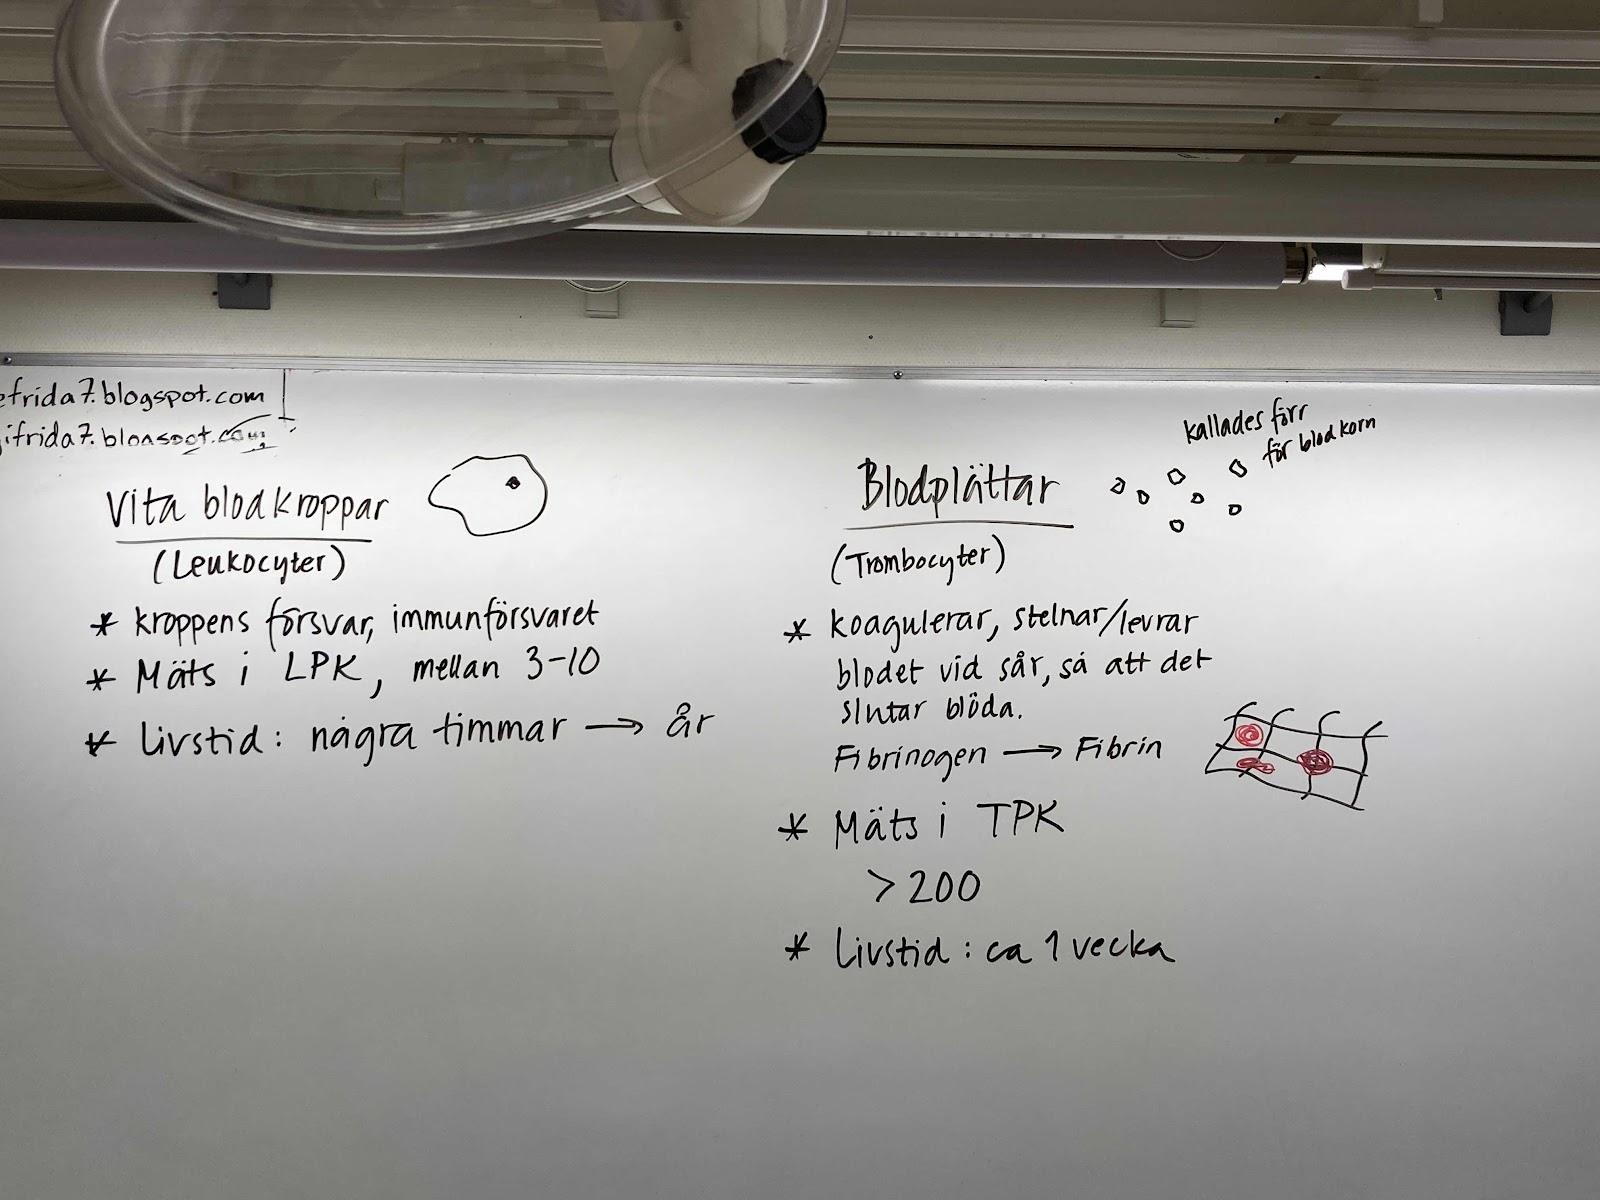 efrida7.blogspot.com
ifrida7.blogspot.com
Vita blodkroppar
(Leukocyter)
* kroppens försvar, immunförsvaret
* Mäts i LPK, mellan 3-10
* Livstid: några timmar → år
kallades förr
för blodkorn
Blodplättar
(Trombocyter)
* koagulerar, stelnar/levrar
blodet vid sår, så att det
slutar blöda.
Fibrinogen → Fibrin
* Mäts i TPK
>200
* Livstid: ca 1 vecka